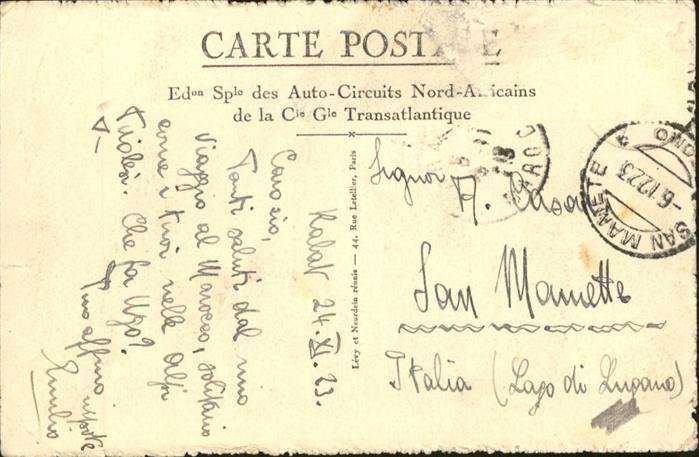 CARTE POSTALE
Edon Sple des Auto-Circuits Nord-Africains
de la Cie Gle Transatlantique
Rabat 24.XI.23.
Caro zio,
Tanti saluti dal mio
viaggio al Marocco, solitario
come i tuoi nelle Alpi
Tirolesi. Che fa Ugo?
Tuo affmo nipote
Emilio
Lévy et Neurdein réunis — 44, Rue Letellier, Paris
Signor A. Casa
San Mamette
Italia (Lago di Lugano)
SAN MAMETE
COMO
6.12.23
MAROC